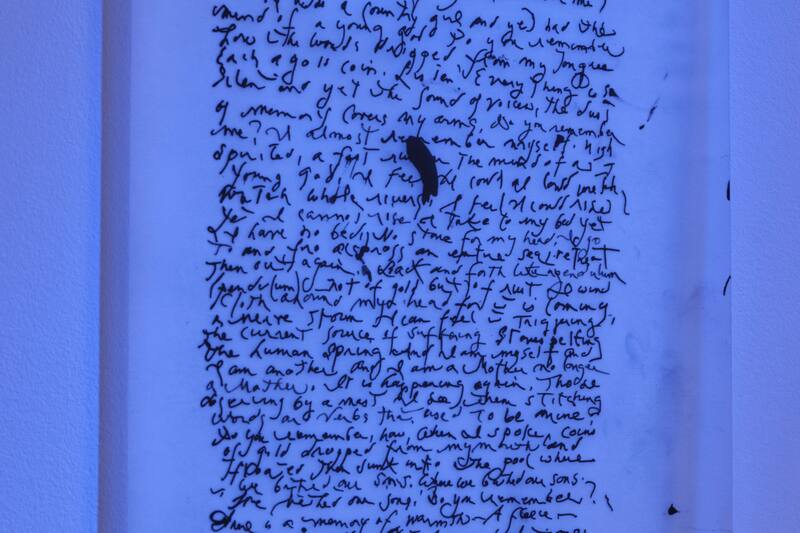 mind of a country girl and yet had the
of a young god. Do you remember
how the words dropped from my tongue
each a gold coin. Listen. Everything is so
silent and yet the sound of voices, the dust
of memory covers my arms, do you remember
me? I almost remember myself. high
spirited, a fast the mind of a
young god. I feel I could I could with
whole rivers. I feel I could rise
yet I cannot rise or take to my bed yet
I have no bed, No stone for my head. I go
to and fro across an entire
then out again. Back and forth like a pendulum
(pendu(um) not of gold but of rust. I wind
cloth around my head for it is coming,
a nerve storm I can feel it Triggering,
the current source of suffering Stones pelting
the human Spring and I am myself and
I am another and I am a Mother no longer
a Mother. It is happening again. Those
by a mast. I see them stitching
words and verbs that used to be mine.
Do you remember, how, when I spoke, coins
of gold dropped from my mouth and
floated then sunk into the pool where
we bathed our sons. Where we bathed our sons.
We bathed our sons, do you remember?
There is a memory of warmth - A fleece -